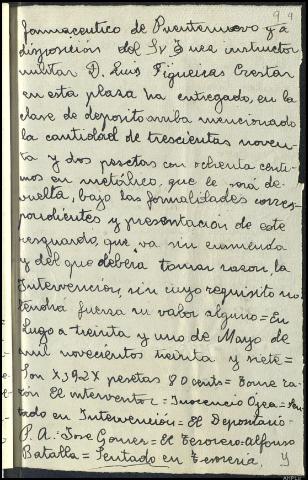 94
farmaceutico de Puentenuevo y a
disposición del Sr Juez instructor
militar D. Luis Figueiras Crestar
en esta plaza ha entregado, en la
clase de deposito arriba mencionado
la cantidad de trescientas noven-
ta y dos pesetas con ochenta centi-
mos en metálico, que le será de-
vuelta, bajo las formalidades corres-
pondientes y presentación de este
resguardo, que va sin enmienda
y del que debera tomar razon la
Intervención, sin cuyo requisito no
tendrá fuerza ni valor alguno = En
Lugo a treinta y uno de Mayo de
mil novecientos treinta y siete =
Son X,392X pesetas 80 cents = Tome ra-
zón El interventor = Inocencio Ogea = Sen-
tado en Intervención = El Depositario
P. A.: Jose Gomez = El Tesorero = Alfonso
Batalla = Sentado en Tesoreria. Y